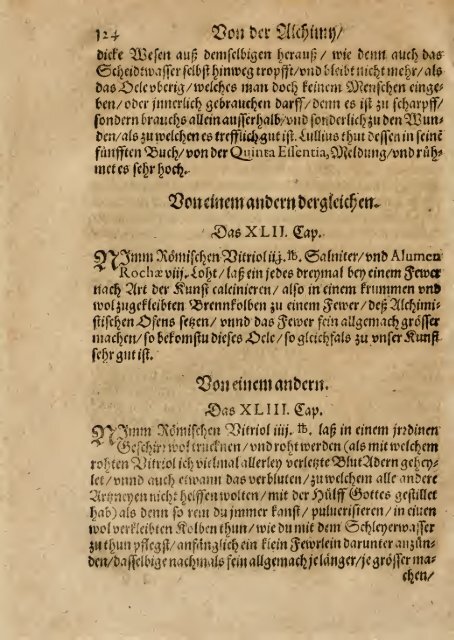 124 Von der Alchimy/
dicke Wesen auß demselbigen herauß / wie denn auch das
Scheidtwasser selbst hinweg tropfft / vnd bleibt nicht mehr / als
das Oele vberig / welches man doch keinem Menschen eingeben
ben / oder jnnerlich gebrauchen darff / denn es ist zu scharpff /
sondern brauchs allein ausserhalb / vnd sonderlich zu den Wun-
den / als zu welchen es trefflich gut ist. Lullius thut dessen in seinē
fünfften Buch / von der Quinta Essentia, Meldung / vnd rüh-
met es sehr hoch.
Von einem andern dergleichen.
Das XLII. Cap.
NImm Römischen Vitriol iiij. ℔. Salniter / vnd Alumen
Rochæ viij. Loht / laß ein jedes dreymal bey einem Fewer
nach Art der Kunst calcinieren / also in einem krummen vnd
wol zugekleibten Brennkolben zu einem Fewer / deß Alchimi-
stischen Ofens setzen / vnnd das Fewer fein allgemach grösser
machen / so bekomstu dieses Oele / so gleichfals zu vnser Kunst
sehr gut ist.
Von einem andern.
Das XLIII. Cap.
NImm Römischen Vitriol iiij. ℔. laß in einem jrrdinen
Geschirr wol trucknen / vnd roht werden (als mit welchem
rohten Vitriol ich vielmal allerley verletzte Blut Adern gehey-
let / vnnd auch etwann das verbluten / zu welchem alle andere
Artzneyen nicht helffen wolten / mit der Hülff Gottes gestillet
hab) als denn so rein du jmmer kanst / puluerisieren / in einen
wol verkleibten Kolben thun / wie du mit dem Schleyerwasser
zu thun pflegst / anfänglich ein klein Fewrlein darunter anzün-
den / dasselbige nachmals fein allgemach je länger / je grösser ma-
chen /